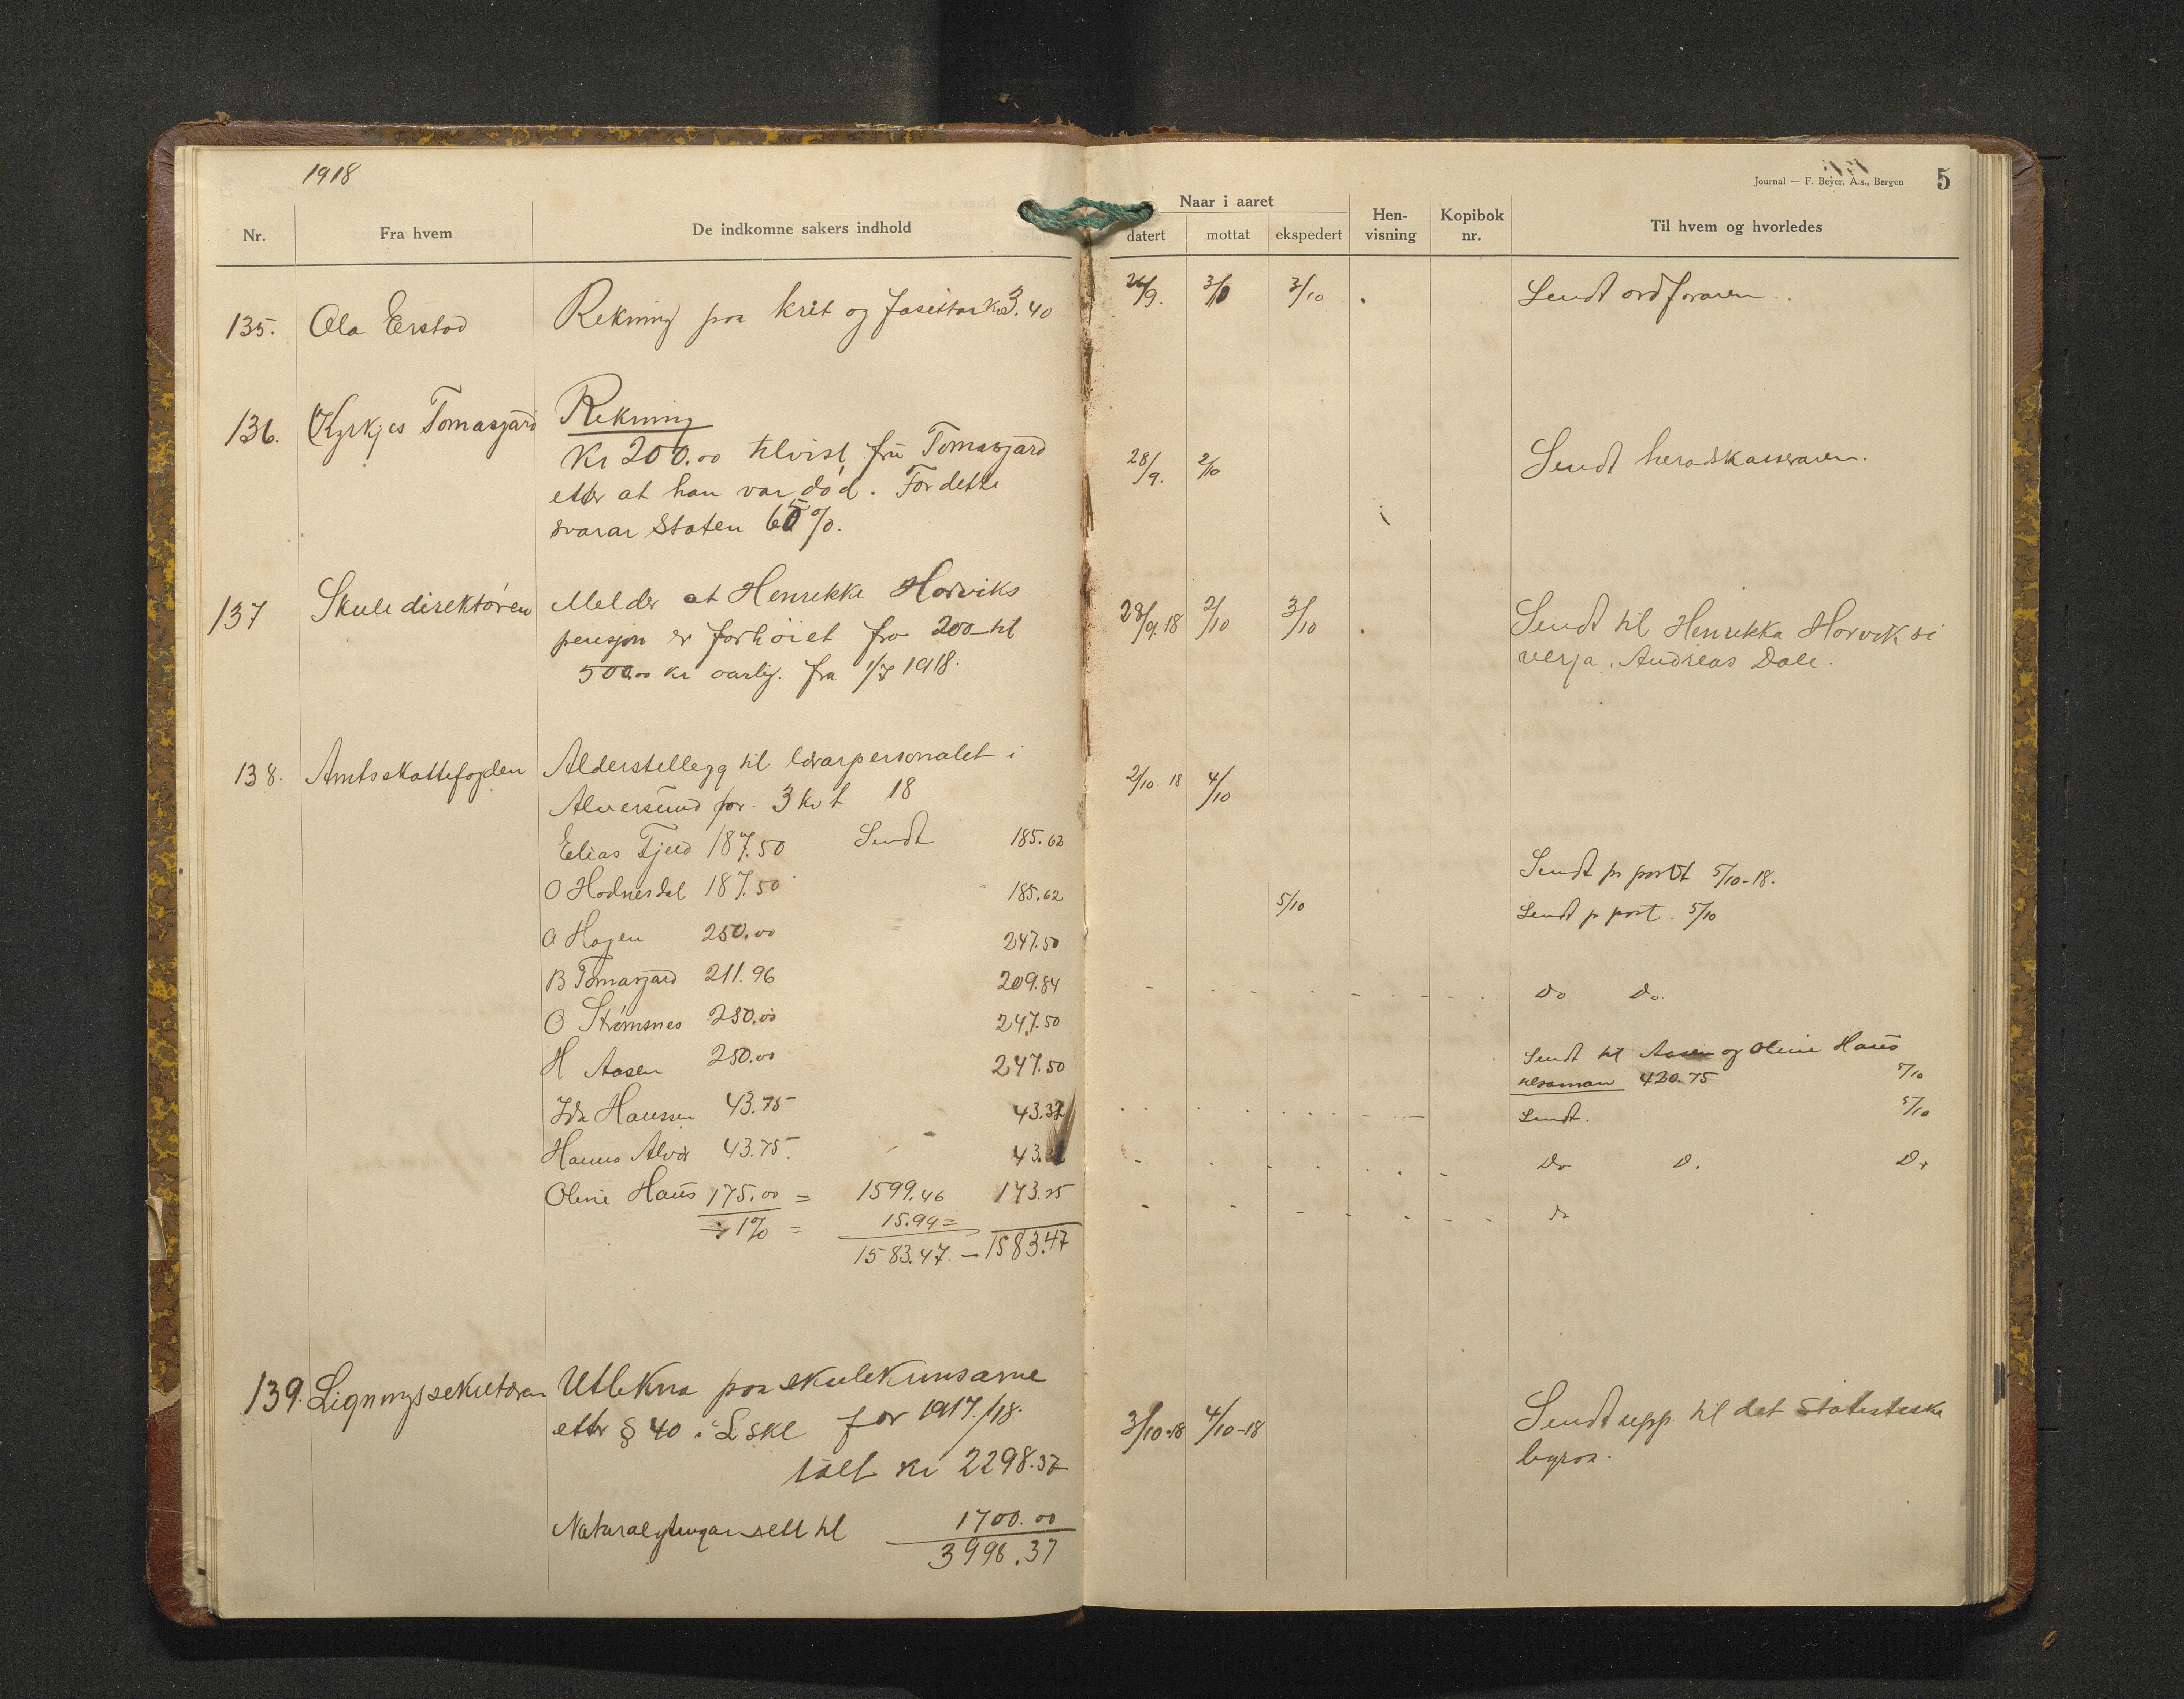 1918
Journal — F. Beyer, A.s., Bergen 5
Nr. Fra hvem De indkomne sakers indhold Naar i aaret datert mottat ekspedert Hen-visning Kopibok nr. Til hvem og hvorledes
135. Ola Erstad Rekning paa krit og fasittar Kr 3.40 26/9. 3/10 3/10 Sendt ordføraren.
136. Kyrkjes Tomasgard Rekning
Kr 200.00 tilvist fru Tomasgard 28/9. 2/10 Sendt heradskasseraren.
etter at han var død. For dette
svarar Staten %.
137 Skuledirektøren Melder at Henrikke Horviks 28/9.18 2/10 3/10 Sendt til Henrikka Horvik si
pensjon er forhöiet fra 200 til verja. Andreas Dale.
500.00 kr aarlig. fra 1/7 1918.
138. Amtsskattefogden Alderstellegg til lærarpersonalet i 2/10. 18 4/10
Alversund for. 3 kvt 18
Elias Tjeld 187.50 Sendt 185.62 Sendt pr post 5/10-18.
O Hodnesdal 187.50 185.62 5/10 Sendt pr post. 5/10
A Hagen 250.00 247.50
B Tomasgard 211.96 209.84 Do Do
O Strømsnes 250.00 247.50
H Aasen 250.00 247.50 Sendt til Aasen og Oline Haus
tilsaman 420.75 5/10
Ida Hanssen 43.75 43.32 Sendt. 5/10
Hanna Alver 43.75. 43. Do D. Do
Oline Haus 175.00 = 1599.46 173.25 do
÷ 1% = 15.99 =
1583.47. — 1583.47
139. Ligningssekretæren Utlikna paa skulekunsarne
etter § 40 i Lskl for 1917/18. 3/10-18 4/10-18 Sendt upp til det Statistiske
ialt kr 2298.37 byraa.
Naturalytingar sett til 1700.00
3998.37